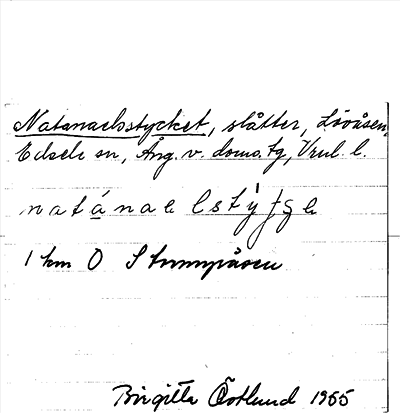 Natanaelsstycket, slåtter, Lövåsen,
Edsele sn, Ång. v. doms. tg,
natánaelstỳʃge
1 km O Stummpåsen
Birgitta Östlund 1955